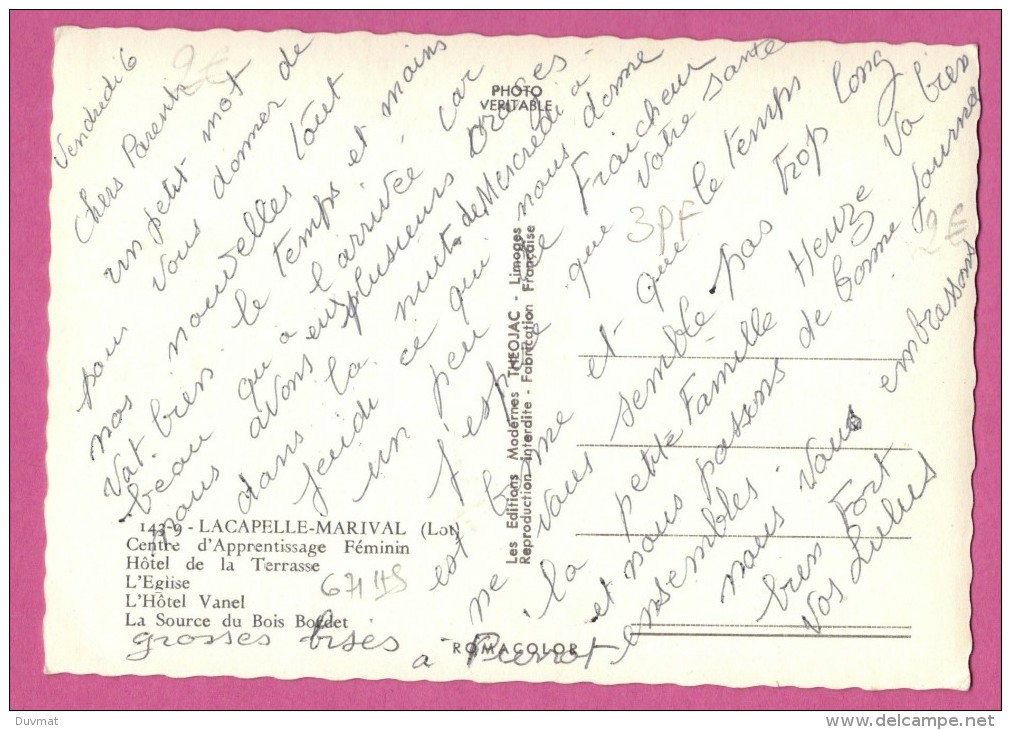 Vendredi 6
Chers Parents
un petit mot
pour vous donner de
nos nouvelles tout
Vat bien le temps et moins
beau qu a l arrivée car
nous avons eu plusieurs orages
dans la nuit de Mercredi a
jeudi ce qui nous donne
un peu de Fraicheur
j espere que votre santé
est bonne et que le temps
ne vous semble pas trop long
la petite Famille Heuze va bien
et nous passons de bonne journee
ensembles.
nous vous embrassons
bien Fort
Vos Lulus
grosses bises
a Pierrot
PHOTO
VERITABLE
Les Editions Modernes THEOJAC - Limoges
Reproduction interdite - Fabrication Française
143-9 - LACAPELLE-MARIVAL (Lot)
Centre d'Apprentissage Féminin
Hôtel de la Terrasse
L'Eglise
L'Hôtel Vanel
La Source du Bois Bordet
ROMACOLOR
2€
2€
Duvmat
www.delcampe.net